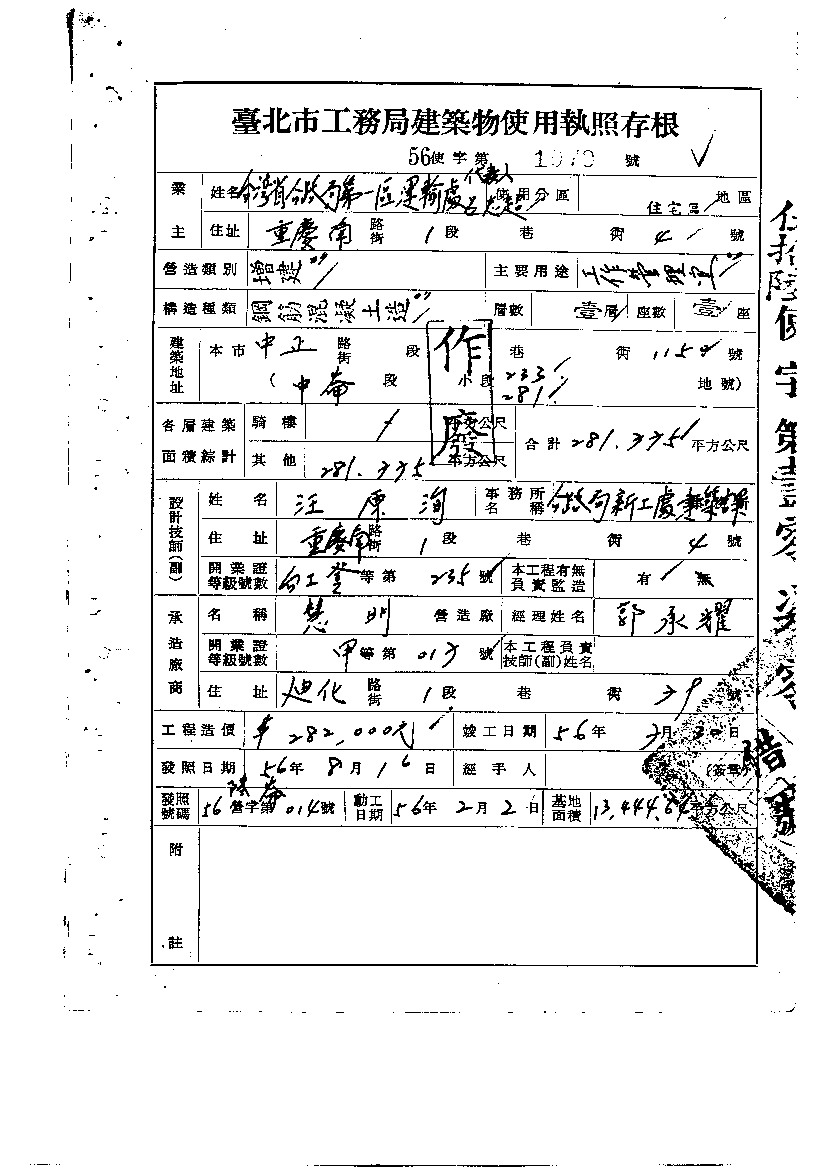 臺北市工務局建築物使用執照存根
56使字第 1070 號
業主 姓名 台灣省公路局第一區運輸處 代表人 使用分區 住宅區 地區
住址 重慶南 路街 1 段 巷 衖 4 號
營造類別 增建 主要用途 工作管理室
構造種類 鋼筋混凝土造 層數 壹層 座數 壹座
建築地址 本市 中正 路街 段 巷 衖 115 號
( 中崙 段 小段 233 281 地號)
作廢
各層建築面積綜計 騎樓 平方公尺 合計 281.335 平方公尺
其他 281.335 平方公尺
設計技師(副) 姓名 汪原洵 事務所名稱 公路局新工處
住址 重慶南 路街 1 段 巷 衖 4 號
開業證等級號數 台工登 等第 235 號 本工程有無負責監造 有 無
承造廠商 名稱 慧明 營造廠 經理姓名 郭承耀
開業證等級號數 甲 等第 013 號 本工程負責技師(副)姓名
住址 迪化 路街 1 段 巷 衖 39 號
工程造價 282,000元 竣工日期 56年 3月 30日
發照日期 56年 8月 16日 經手人 (簽章)
發照號碼 56 營字第 014號 動工日期 56年 2月 2日 基地面積 13,444.64 平方公尺
附註
伍拾陸使字第壹零柒零